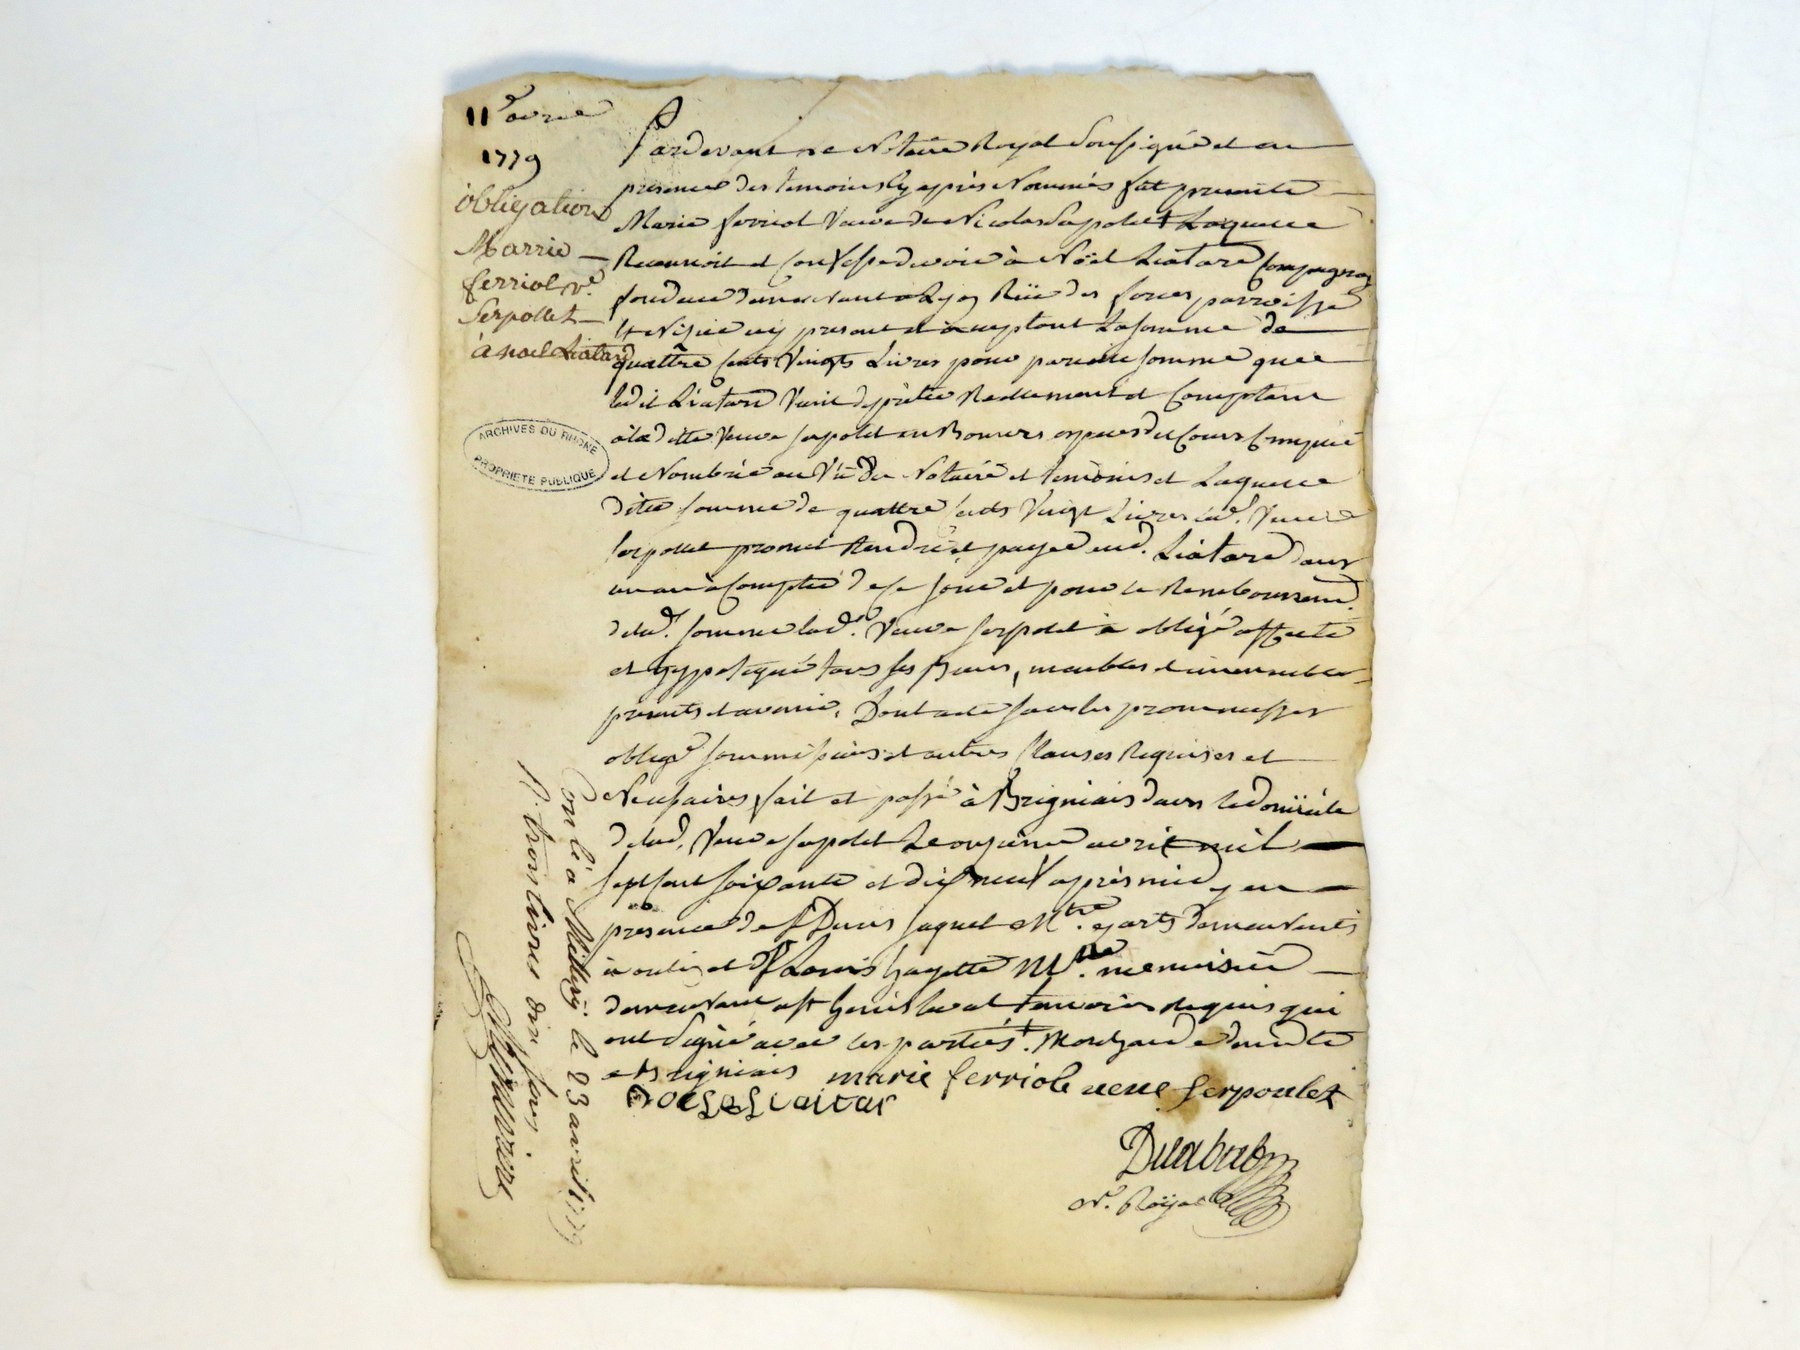 11 avril
1779
obligation
Marrie
ferriol v.e
Serpollet
à noel Liatard
ARCHIVES DU RHONE
PROPRIETE PUBLIQUE
Pardevant le Notaire Royal Soussigné et en
presence des temoins cy après Nommés fût presente
Marie ferriol Veuve de Nicolas Serpolet Laquelle
Reconnoit et Confesse devoir à Noël Liatard Compagnon
demeurant a Lyon Rüe des parroisse
St Nizier icy present et acceptant La somme de
quattre Cents Vingts Livres pour pareille somme que
ledit Liatard Vient de prêter Reellement et Comptant
à la ditte Veuve serpolet en Bonnes espèces du Cours Comptée
et Nombrée au Vü du Notaire et temoins et Laquelle
ditte somme de quattre Cents Vingt Livres lad. Veuve
serpolet promet Rendre et payer aud. Liatard dans
un an à Compter de ce jour et pour le Remboursem.t
de lad. somme lad. Veuve serpolet à obligé affecté
et hyppotequé tous ses Biens, meubles et immeubles
presents et avenir. Dont acte sous les promesses
oblig. soumissions et autres Clauses Requises et
Necessaires fait et passé à Brigniais dans le domicile
de lad. Veuve serpolet Le onzieme avril mil
sept Cent soixante et dix neuf après midy en
presence de Jaquet M.tre demeurants
à et Sr Louis M.tre menuisier
demeurant a St Genis Laval temoins Requis qui
ont Signé avec les parties.
a Brigniais marie ferriole veue serpoulet
N. Royal
Con.lé a Millery le 23 avril 1779
R. trois livres dix sous